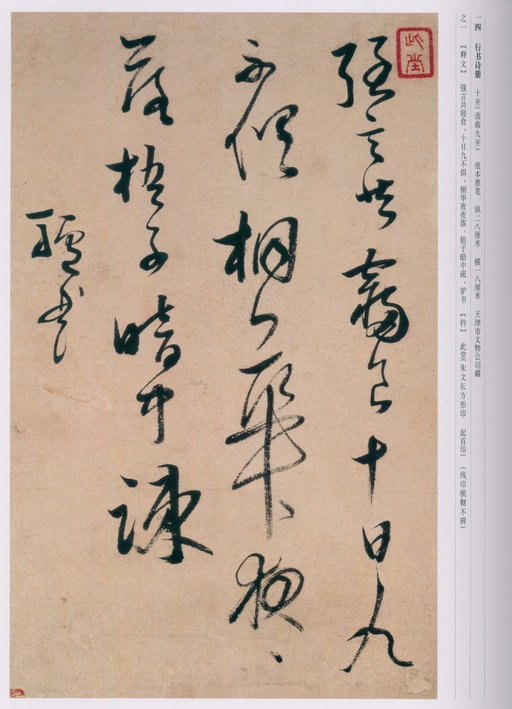 一四 行书诗册 十开(选载九开) 纸本墨笔 纵二八厘米 横一八厘米 天津市文物公司藏
之一 【释文】 强言共寝食，十日九不俱。桐华夜夜落，梧子暗中疏。驴书 【钤】 此堂(朱文长方形印 起首印) (残印模糊不辨)
此堂
强言共寢食十日九
不俱桐華夜〻
落梧子暗中疎
驢書